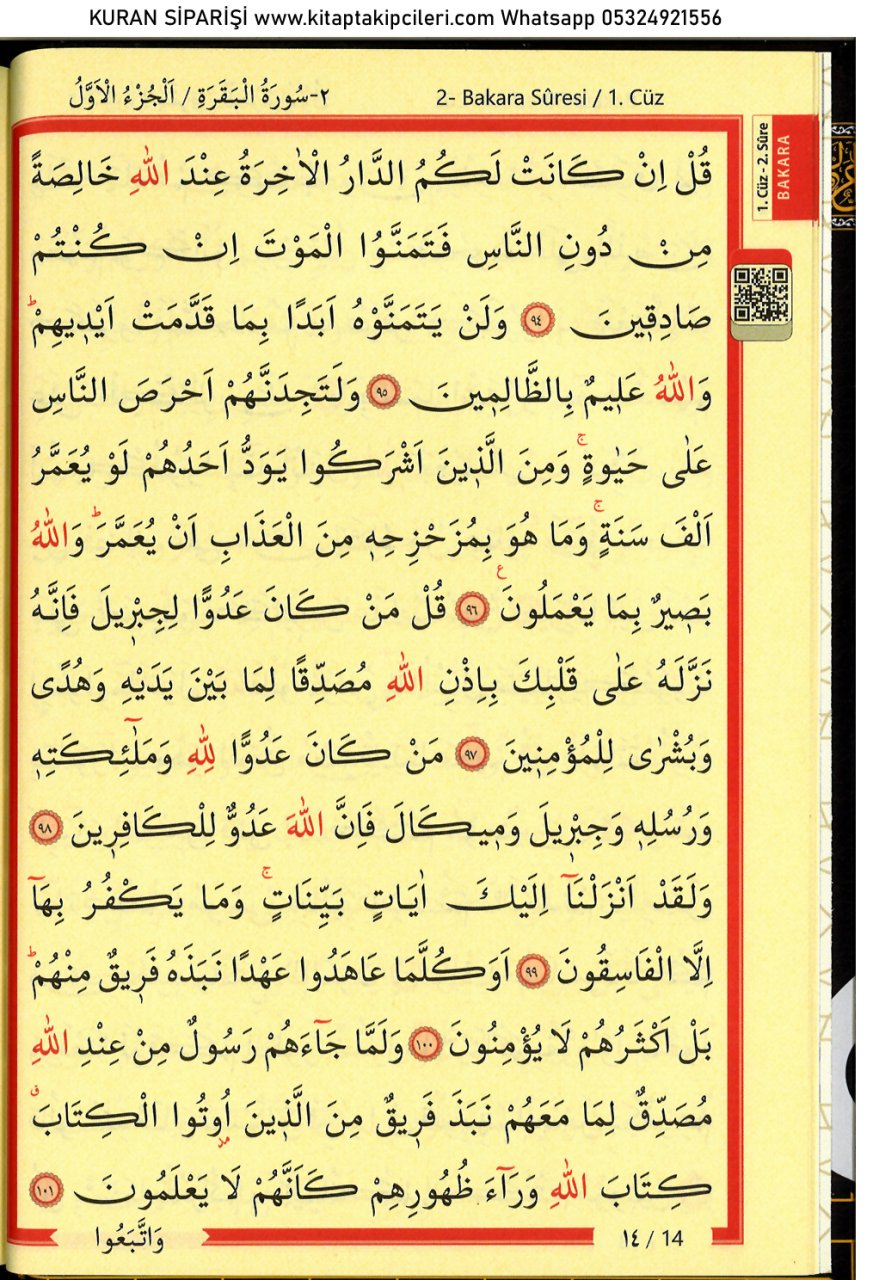 KURAN SİPARİŞİ www.kitaptakipcileri.com Whatsapp 05324921556
2- Bakara Sûresi / 1. Cüz
٢-سُورَةُ الْبَقَرَةِ / اَلْجُزْءُ الْاَوَّلُ
1. Cüz - 2. Sûre
BAKARA
قُلْ اِنْ كَانَتْ لَكُمُ الدَّارُ الْاٰخِرَةُ عِنْدَ اللّٰهِ خَالِصَةً
مِنْ دُونِ النَّاسِ فَتَمَنَّوُا الْمَوْتَ اِنْ كُنْتُمْ
صَادِقٖينَ ﴿٩٤﴾ وَلَنْ يَتَمَنَّوْهُ اَبَدًا بِمَا قَدَّمَتْ اَيْدٖيهِمْؕ
وَاللّٰهُ عَلٖيمٌ بِالظَّالِمٖينَ ﴿٩٥﴾ وَلَتَجِدَنَّهُمْ اَحْرَصَ النَّاسِ
عَلٰى حَيٰوةٍۚ وَمِنَ الَّذٖينَ اَشْرَكُوا يَوَدُّ اَحَدُهُمْ لَوْ يُعَمَّرُ
اَلْفَ سَنَةٍۚ وَمَا هُوَ بِمُزَحْزِحِهٖ مِنَ الْعَذَابِ اَنْ يُعَمَّرَؕ وَاللّٰهُ
بَصٖيرٌ بِمَا يَعْمَلُونَ ﴿٩٦﴾ ع قُلْ مَنْ كَانَ عَدُوًّا لِجِبْرٖيلَ فَاِنَّهُ
نَزَّلَهُ عَلٰى قَلْبِكَ بِاِذْنِ اللّٰهِ مُصَدِّقًا لِمَا بَيْنَ يَدَيْهِ وَهُدًى
وَبُشْرٰى لِلْمُؤْمِنٖينَ ﴿٩٧﴾ مَنْ كَانَ عَدُوًّا لِلّٰهِ وَمَلٰٓئِكَتِهٖ
وَرُسُلِهٖ وَجِبْرٖيلَ وَمٖيكَالَ فَاِنَّ اللّٰهَ عَدُوٌّ لِلْكَافِرٖينَ ﴿٩٨﴾
وَلَقَدْ اَنْزَلْنَٓا اِلَيْكَ اٰيَاتٍ بَيِّنَاتٍۚ وَمَا يَكْفُرُ بِهَٓا
اِلَّا الْفَاسِقُونَ ﴿٩٩﴾ اَوَكُلَّمَا عَاهَدُوا عَهْدًا نَبَذَهُ فَرٖيقٌ مِنْهُمْؕ
بَلْ اَكْثَرُهُمْ لَا يُؤْمِنُونَ ﴿١٠٠﴾ وَلَمَّا جَٓاءَهُمْ رَسُولٌ مِنْ عِنْدِ اللّٰهِ
مُصَدِّقٌ لِمَا مَعَهُمْ نَبَذَ فَرٖيقٌ مِنَ الَّذٖينَ اُوتُوا الْكِتَابَۗ
كِتَابَ اللّٰهِ وَرَٓاءَ ظُهُورِهِمْ كَاَنَّهُمْ لَا يَعْلَمُونَ ﴿١٠١﴾
١٤ / 14
وَاتَّبَعُوا